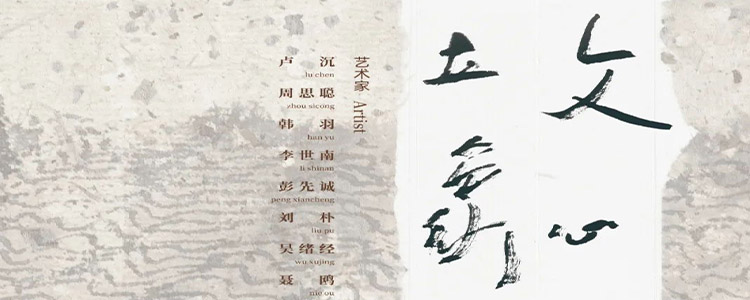 文心
立
艺术家 Artist
卢沉
lu chen
周思聪
zhou sicong
韩羽
han yu
李世南
li shinan
彭先诚
peng xiancheng
刘朴
liu pu
吴绪经
wu xujing
聂鸥
nie ou